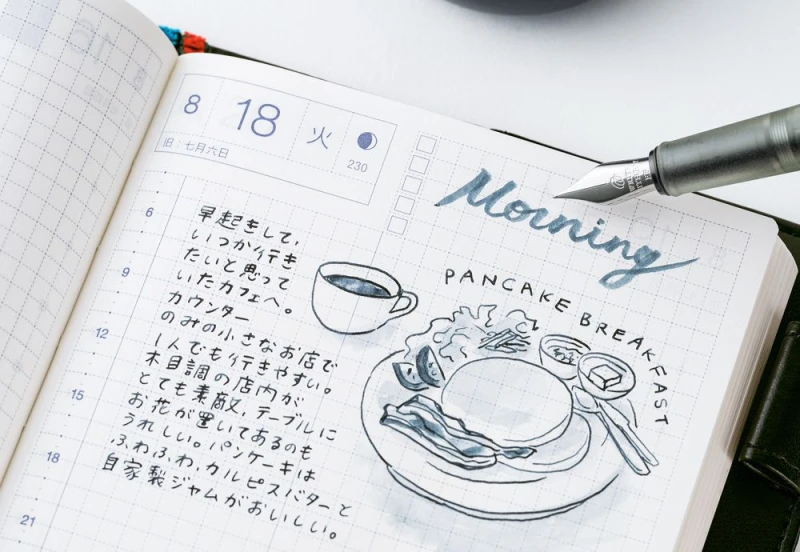 8 18 火
旧：七月六日 230
Morning
PANCAKE BREAKFAST
6
9
12
15
18
21
早起きして、
いつか行き
たいと思って
いたカフェへ。
カウンター
のみの小さなお店で
1人でも行きやすい。
木目調の店内が
とても素敵。テーブルに
お花が置いてあるのも
うれしい。パンケーキは
ふわふわ。カルピスバターと
自家製ジャムがおいしい。